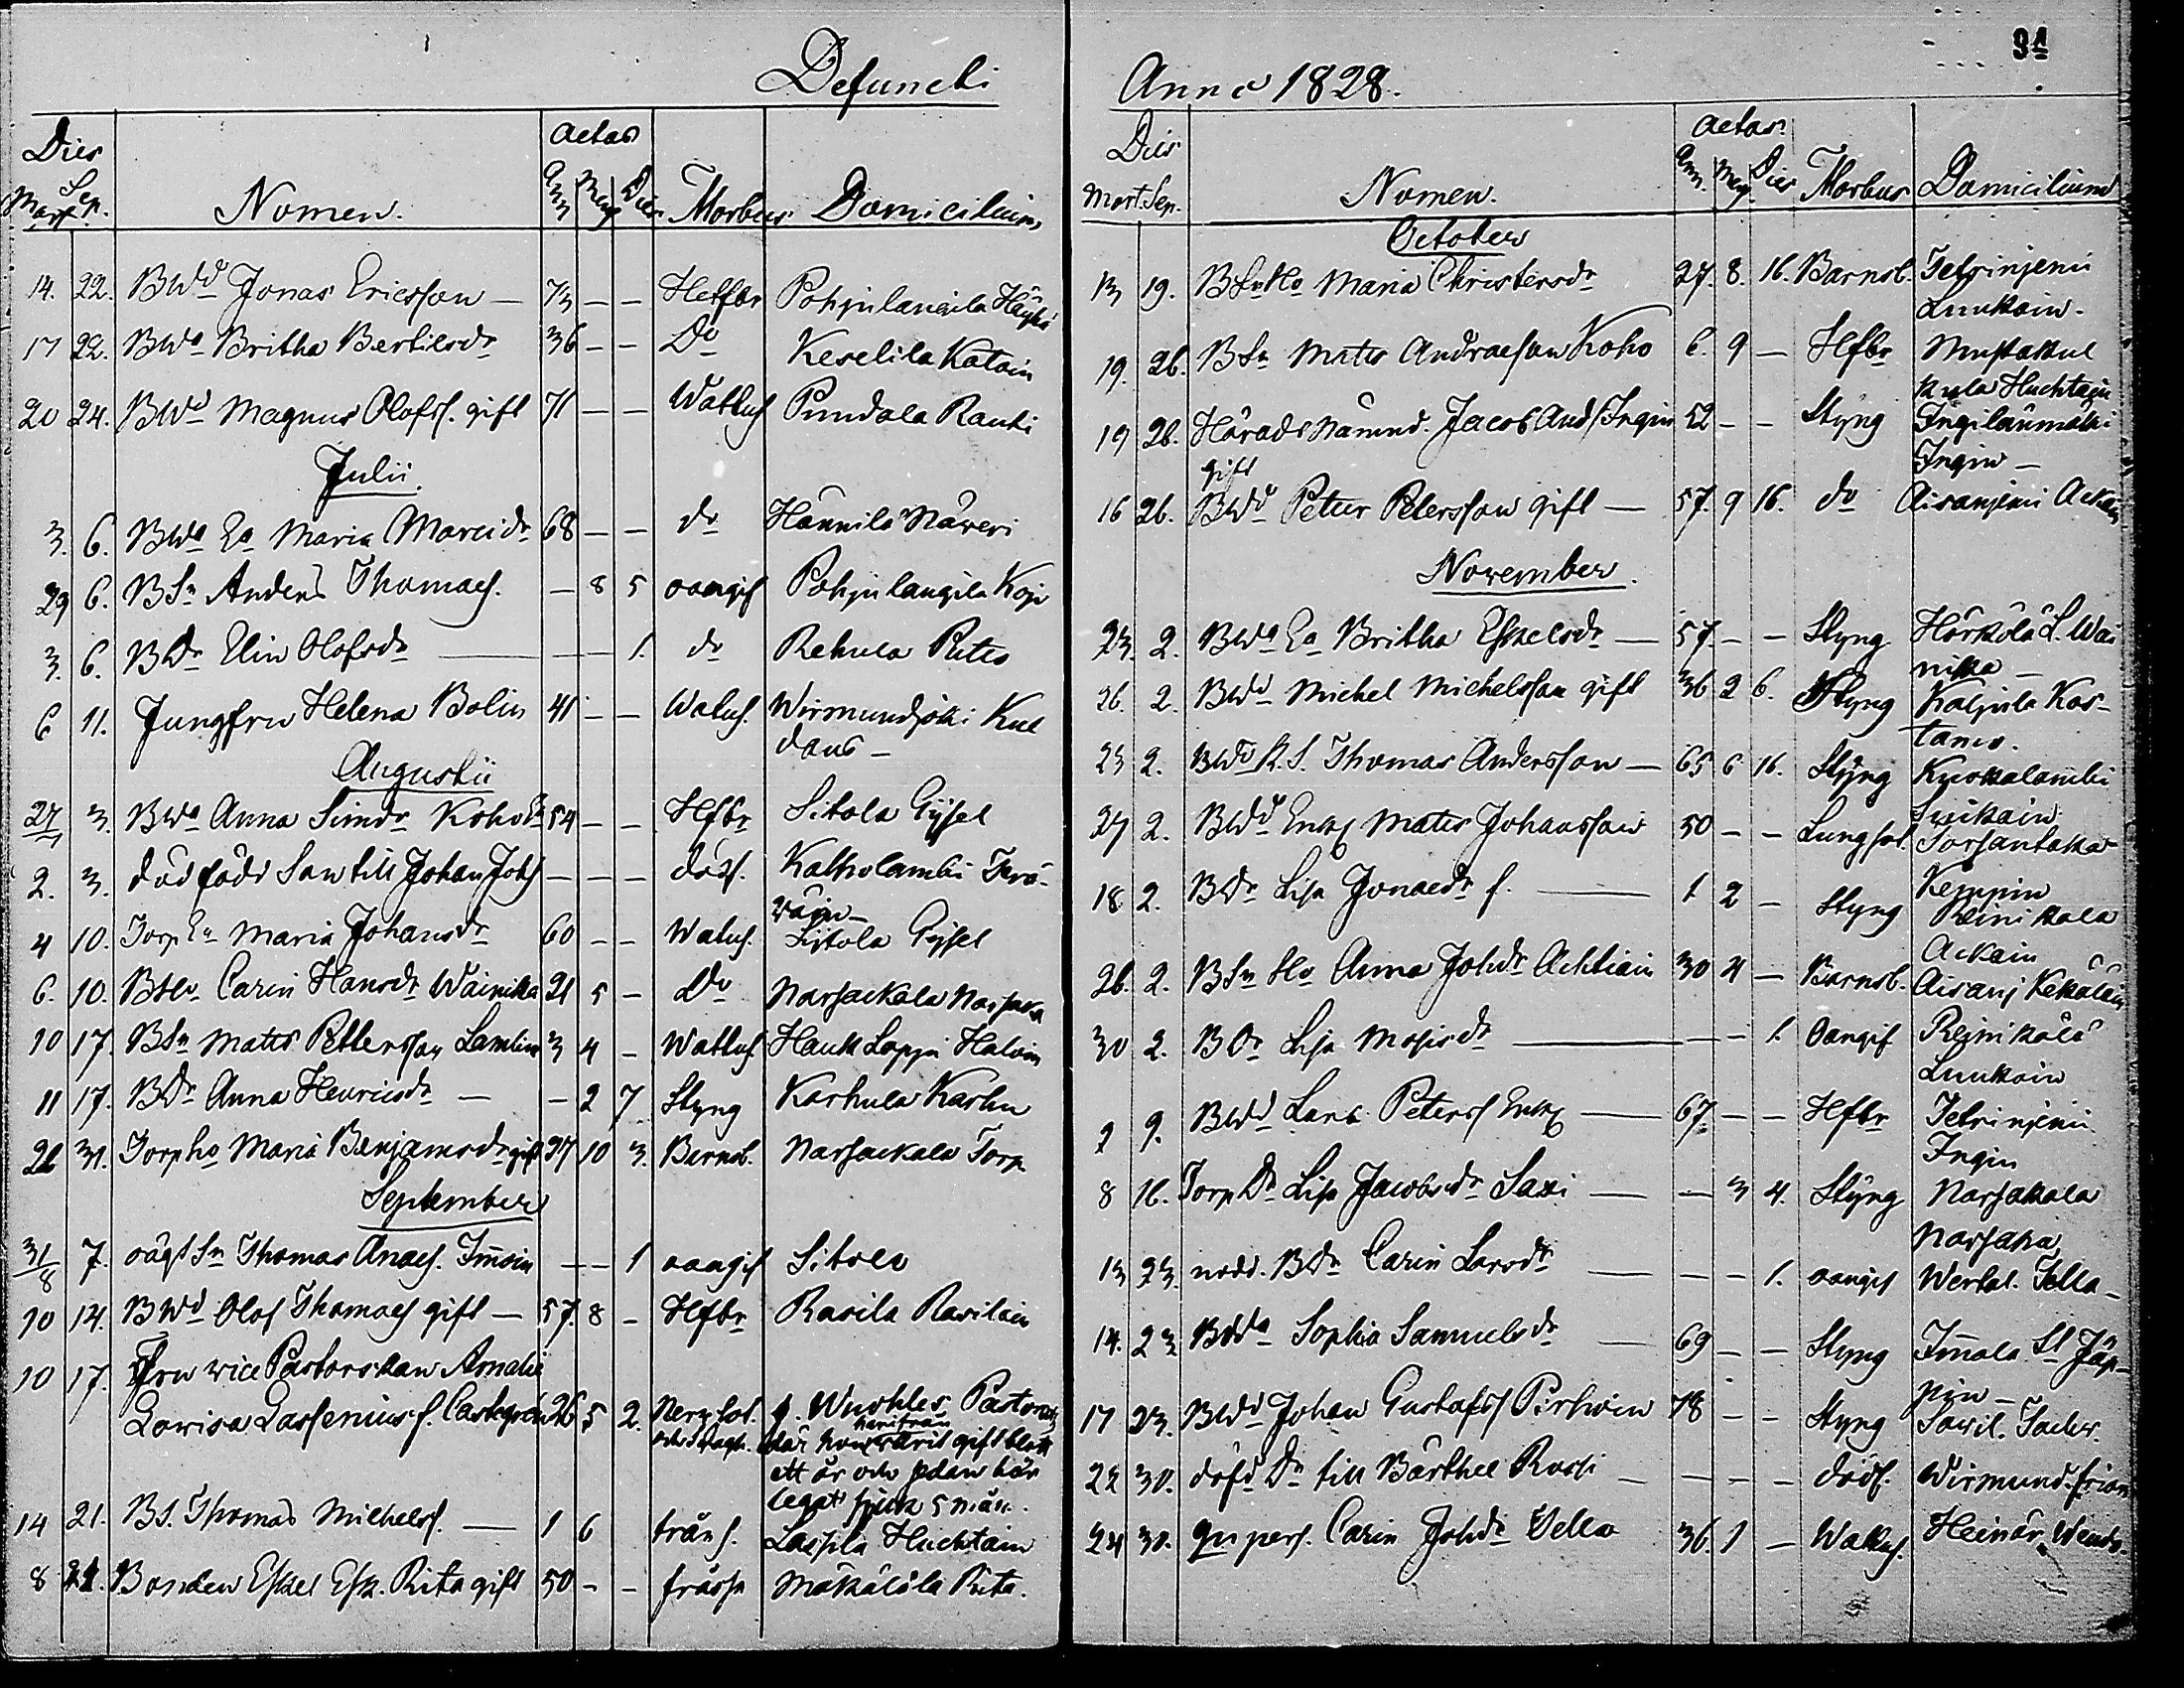 Defuncti
Dies
Mort. Sep.
Nomen.
Aetas
Ann Mens Dies
Morbus. Domicilium,
14. 22. BWd Jonas Ericsson — 73 — — Hetfbr Pohjilangila Häyhä
17 22. BWa Britha Bertilsdr 36 — — Do Keselila Katain
20 24. BWd Magnus Olofss. gift 71 — — Wattus Pundola Rauti
Julii.
3. 6. BWa Ea Maria Marcidr 68 — — do Hännilä Näreri
29 6. BSn Anders Thomaes. — 8 5 oangif Pohjilangila Kojo
3. 6. BDr Elin Olofsdr — — 1. do Rehula Rites
6 11. Jungfru Helena Bolin 41 — — Watus. Wirmundjoki Kul
dans —
Augustii
27/7 3. BWa Anna Simdr Koho Ea 54 — — Hfbr Sitola Gysel
2. 3. död föds Son till Johan Johs — — — döds. Kalholambi Terä-
wäin —
4 10. Torp Ea Maria Johansdr 60 — — Watus. Sitola Gysel
6. 10. BHo Carin Hansdr Wäinikka 21 5 — Do Narsackala Narsaka
10 17. BSn Matts Pettersson Lamlin 3 4 — Wattus. Hauk Lappi Haloin
11 17. BDr Anna Henricsdr — — 2 7 Styng Karhula Karhu
26 31. Torpho Maria Benjamsdr gift 27 10 3. Barnsb. Narsackala Torp
September
31/8 7. oägt Sn Thomas Anaes. Imoin — — 1 oangif Sitola
10 14. BWd Olof Thomaes gift — 57. 8 — Hfbr Rasila Rasilain
10 17. Fru vice Pastorskan Amalie
Lowisa Lassenius f. Castegren 26 5 2. Nerv sot. i Wuohles Pastorat
där hon varit gift blott
ett år och sedan här
legat sjuk 5 mån.
14 21. BS. Thomas Michelss. — 1 6 trån s. Lassila Huchtain
8 21. Bonden Eskel Esk. Rita gift 50 — — frossa Mäkälälä Rita.
94
Anno 1828.
Dies
Mort. Sep.
Nomen.
Aetas
Ann. Mens. Dies
Morbus Domicilium
October
13 19. BSnHo Maria Christersdr 27. 8. 16. Barnsb. Tetrinjemi
Luukain.
19. 26. BSn Mats Andraesson Koho 6. 9 — Hfbr Mustakul
kula Huchtain
19 26. Härads Nämnd. Jacob Ands Ingin 52 — — Styng Ingilänmäki
gift Ingin —
16 26. BWd Peter Petersson gift — 57. 9 16. do Aisanjemi Ackain
November.
23. 2. BWa Ea Britha Eskelsdr — 57. — — Styng Härkölä L. Wäi
nikka —
26. 2. BWd Michel Michelsson gift 36 2 6. Styng Kaljula Kos-
tamo.
23 2. BWd K. S. Thomas Andersson — 65 6 16. Styng Kuokalambi
Suikain
27 2. BWd Enkl Mats Johansson 50 — — Lungsot. Torsantaka
Kemppin
18 2. BDr Lisa Jonaedr f. — 1 2 — Styng Reinikala
Ackain
26. 2. BSn Ho Anna Johdr Achtiain 30 4 — Barnsb. Aisanj Kekäläin
30 2. BDr Lisa Mosisdr — — — 1. Oangif Reinikälä
Luukain
2 9. BWd Lars Peterss Enkl — 67. — — Hfbr Tetrinjemi
Ingin
8 16. Torp Dr Lisa Jacobsdr Saxi — — 3 4. Styng Narsakala
Narsaka
13 23. nödd. BDr Carin Larsdr — — — 1. oangif Werlat. Tella —
14. 23 BWa Sophia Samuelsdr — 69 — — Styng Imala St Jäp-
pin —
17 23. BWd Johan Gustafss Pirhoin 78 — — Styng Sawil.
22 30. döfd Dr till Barthel Rossi — — — — döds. Wirmund.
24 30. Qu pers. Carin Johdr Vella 36. 1 — Wattus. Heinär.